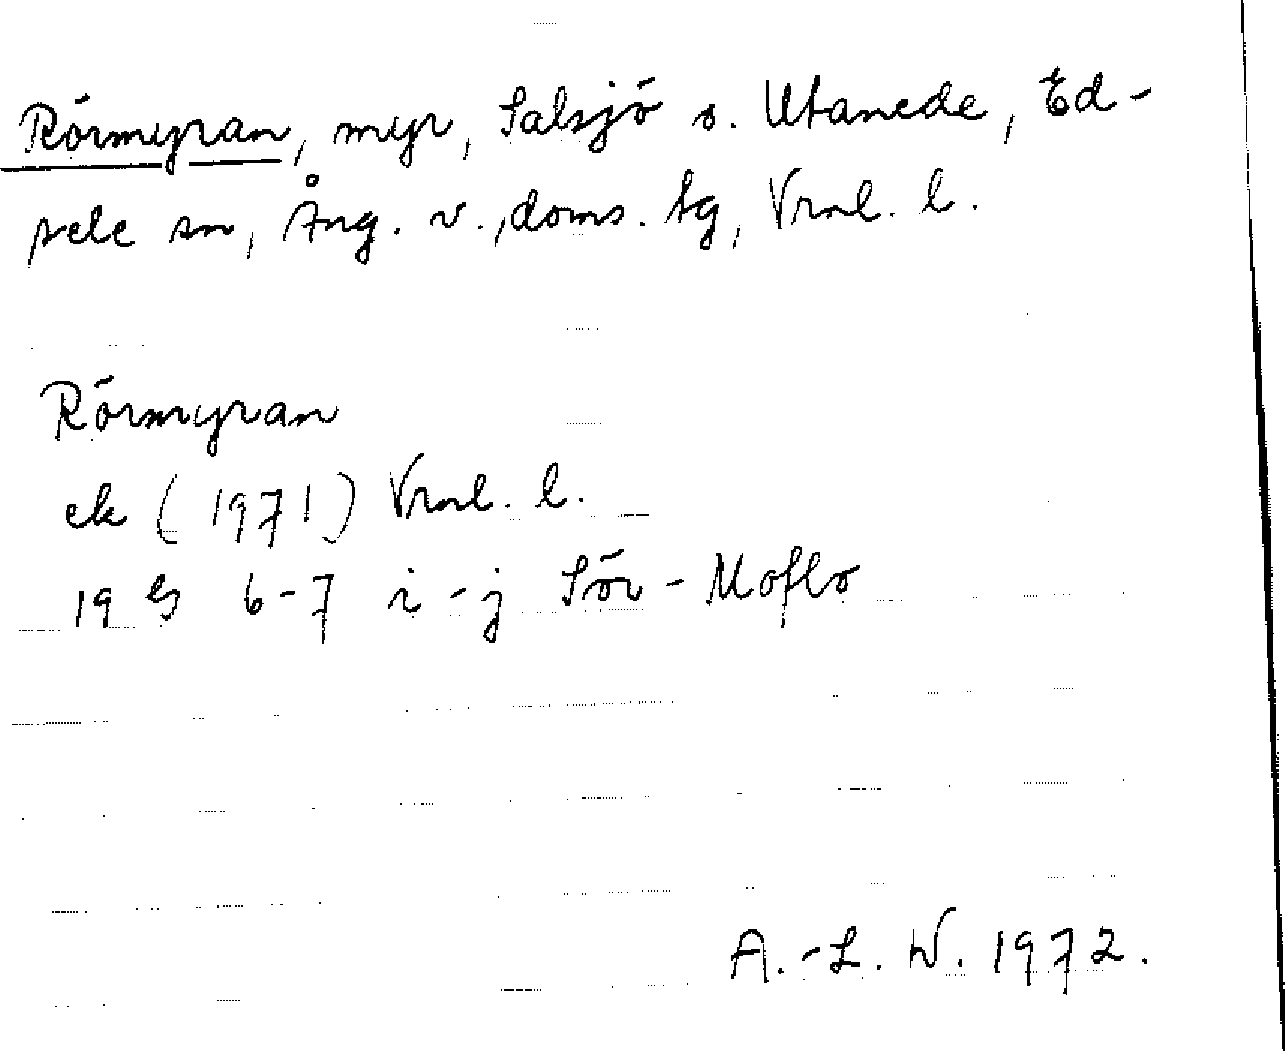 Rörmyran, myr, Salsjö o. Utanede, Ed-
sele sn, Ång. v., doms. tg, Vrnl. l.
Rörmyran
ek (1971) Vrnl. l.
19 G 6-7 i-j Sör-Moflo
A.-L. W. 1972.